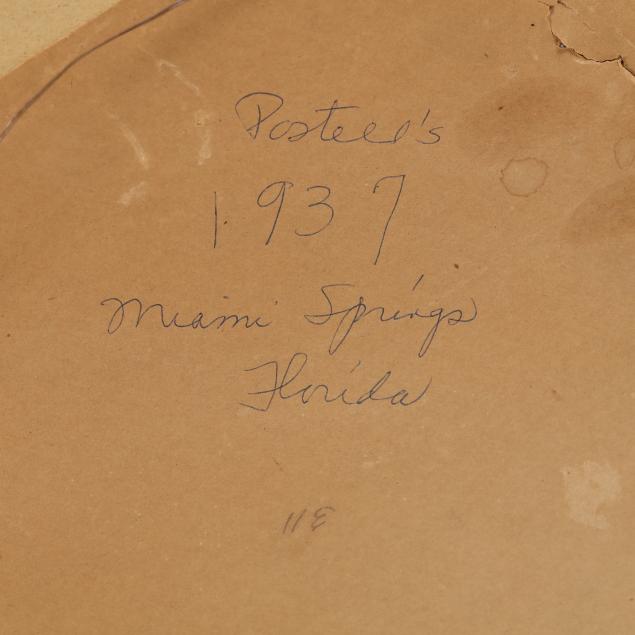 Posteel's
1937
Miami Springs
Florida